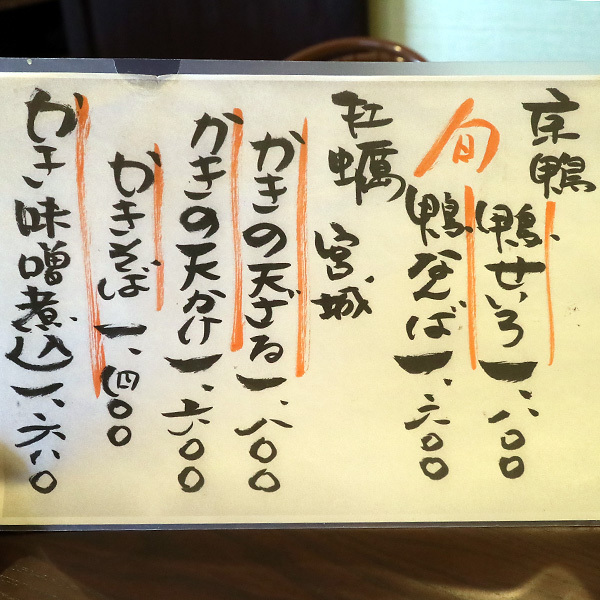 京鴨
鴨せいろ 一、八〇〇
旬
鴨なんば 一、六〇〇
牡蠣
宮城
かきの天ざる 一、八〇〇
かきの天かけ 一、六〇〇
かきそば 一、四〇〇
かき味噌煮込 一、六八〇